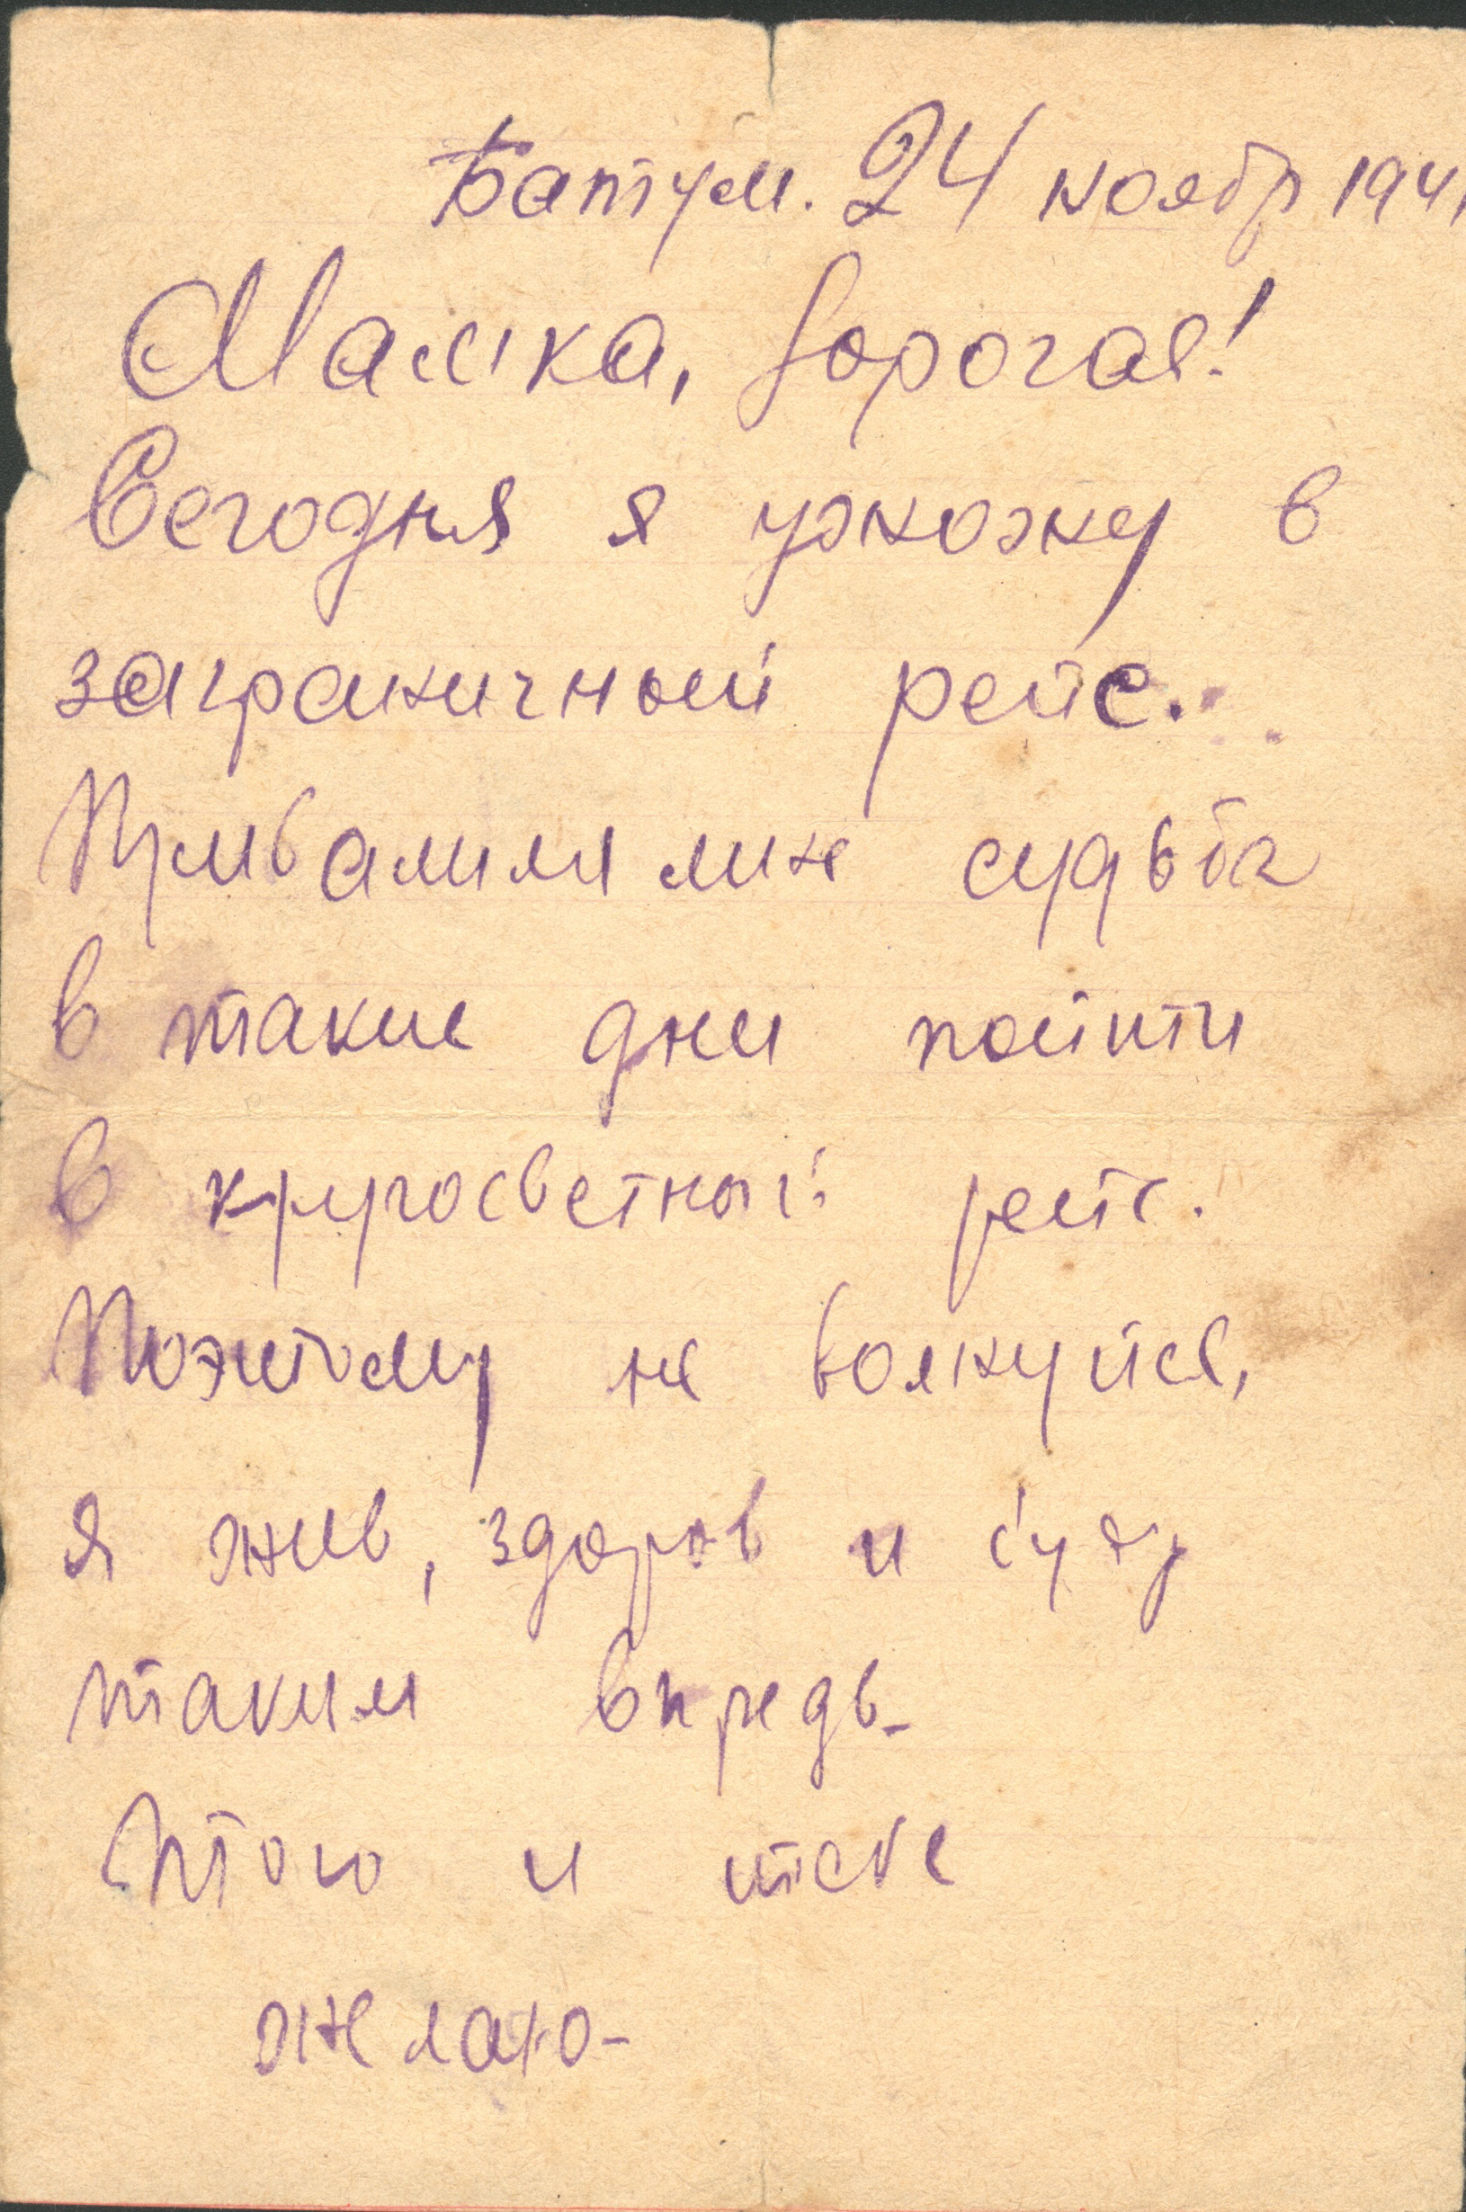 Батум. 24 ноябр 1941
Мамка, дорогая!
Сегодня я ухожу в
заграничный рейс.
Привалила мне судьба
в такие дни пойти
в кругосветный рейс.
Поэтому не волнуйся,
я жив, здоров и буду
таким впредь.
Того и тебе
желаю-